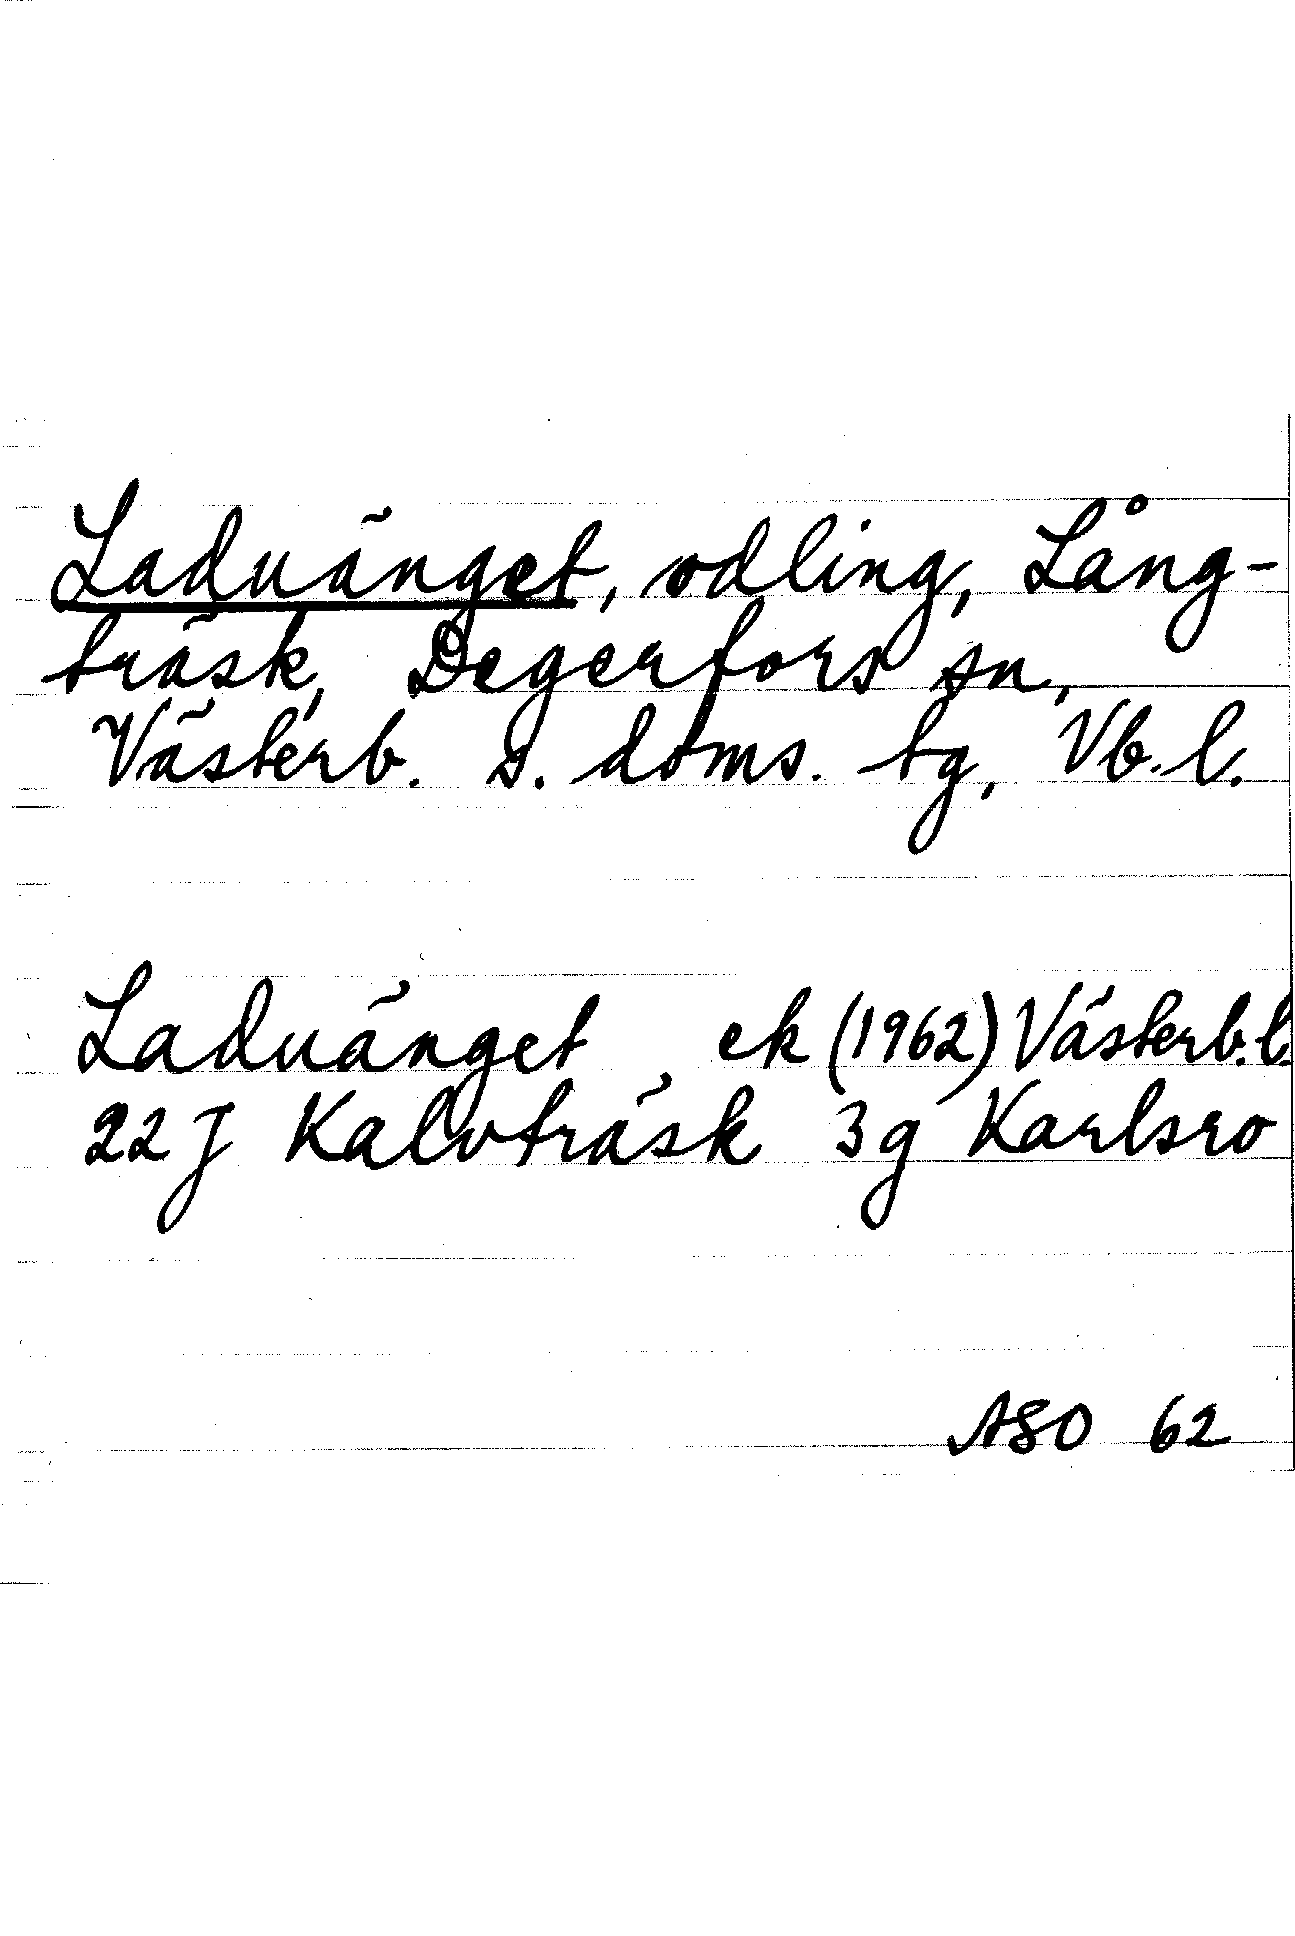 Laduänget, odling, Lång-
träsk, Degerfors sn,
Västerb. s. doms. tg, Vb. l.
Laduänget ek (1962) Västerb. l.
22 J Kalvträsk 3g Karlsro
ASO 62